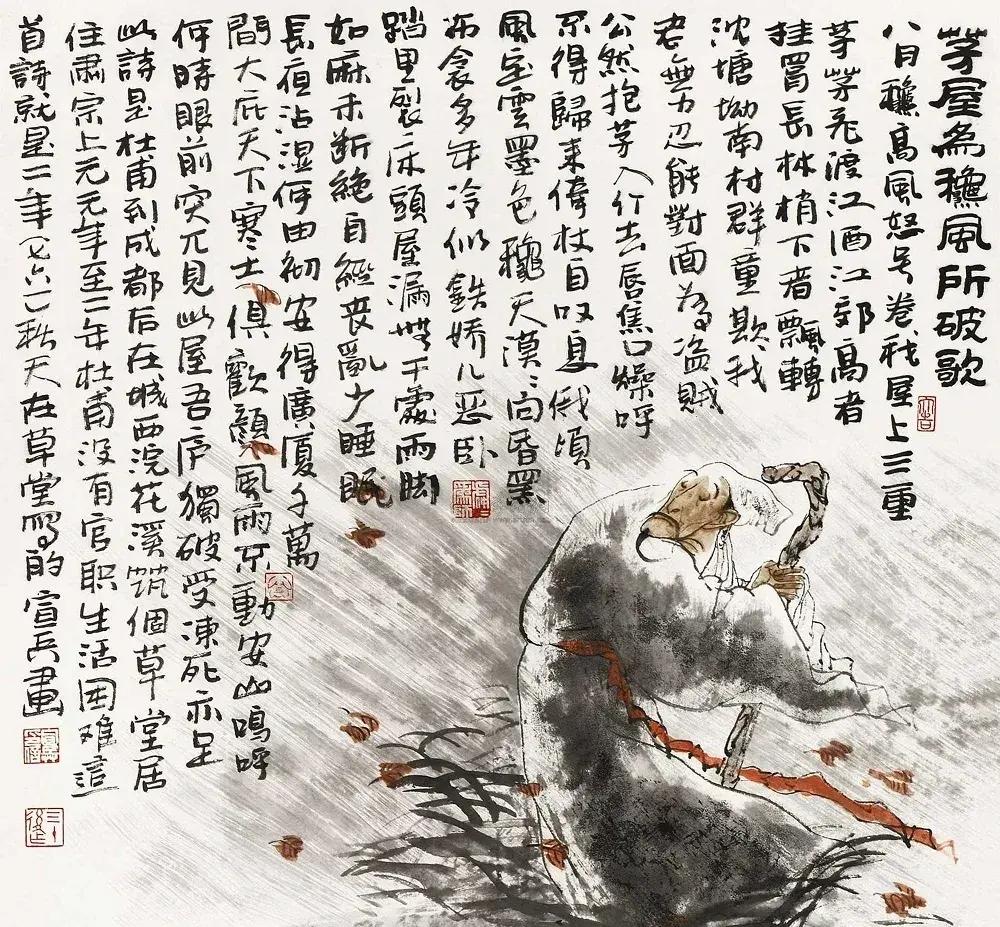 茅屋為龝風所破歌
八月龝高風怒号卷我屋上三重
茅茅飛渡江洒江郊高者
挂罥長林梢下者飄轉
沈塘坳南村群童欺我
老無力忍能對面為盗賊
公然抱茅入竹去唇焦口燥呼
不得歸来倚杖自叹息俄頃
風定雲墨色龝天漠〻向昏黑
布衾多年冷似鉄娇儿恶卧
踏里裂床頭屋漏無干處雨脚
如麻未断絕自經丧亂少睡眠
長夜沾湿何由彻安得廣厦千萬
間大庇天下寒士俱歡顏風雨不動安山嗚呼
何時眼前突兀見此屋吾庐獨破受凍死亦足
此詩是杜甫到成都后在城西浣花溪筑個草堂居
住肅宗上元元年至二年杜甫没有官职生活困难這
首詩就是二年七六一秋天在草堂写的宣兵畫